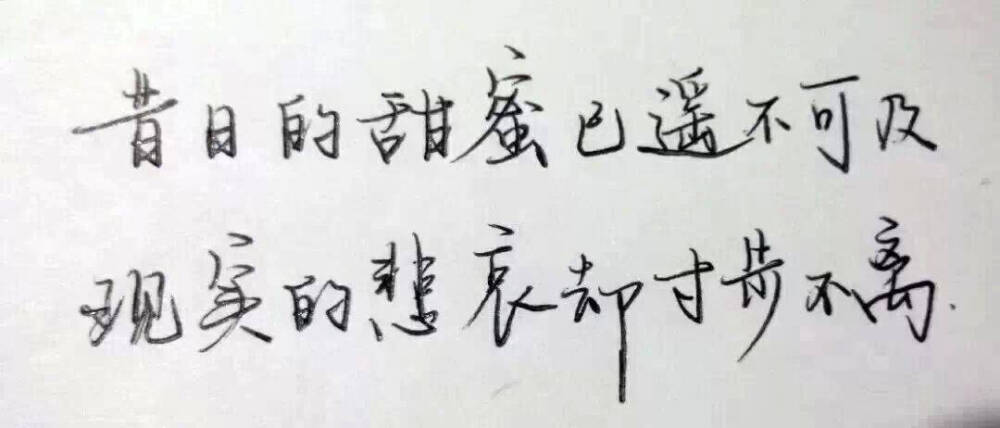 昔日的甜蜜已遥不可及
现实的悲哀却寸步不离.